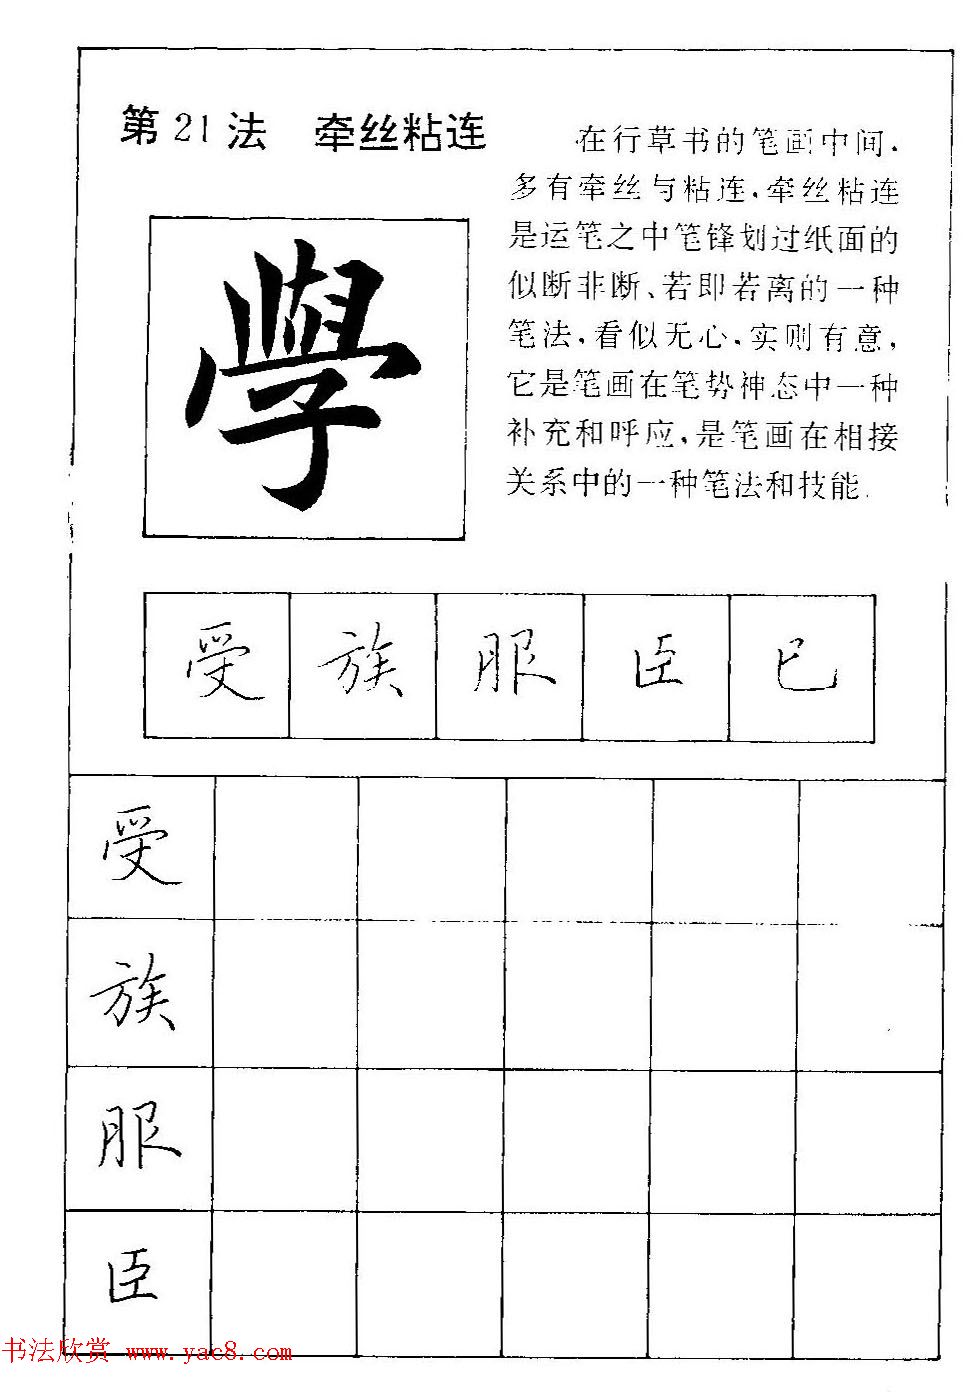 第21法 牵丝粘连
在行草书的笔画中间，
多有牵丝与粘连，牵丝粘连
是运笔之中笔锋划过纸面的
似断非断、若即若离的一种
笔法，看似无心，实则有意，
它是笔画在笔势神态中一种
补充和呼应，是笔画在相接
关系中的一种笔法和技能．
學
受 族 服 臣 已
受
族
服
臣
书法欣赏 www.yac8.com